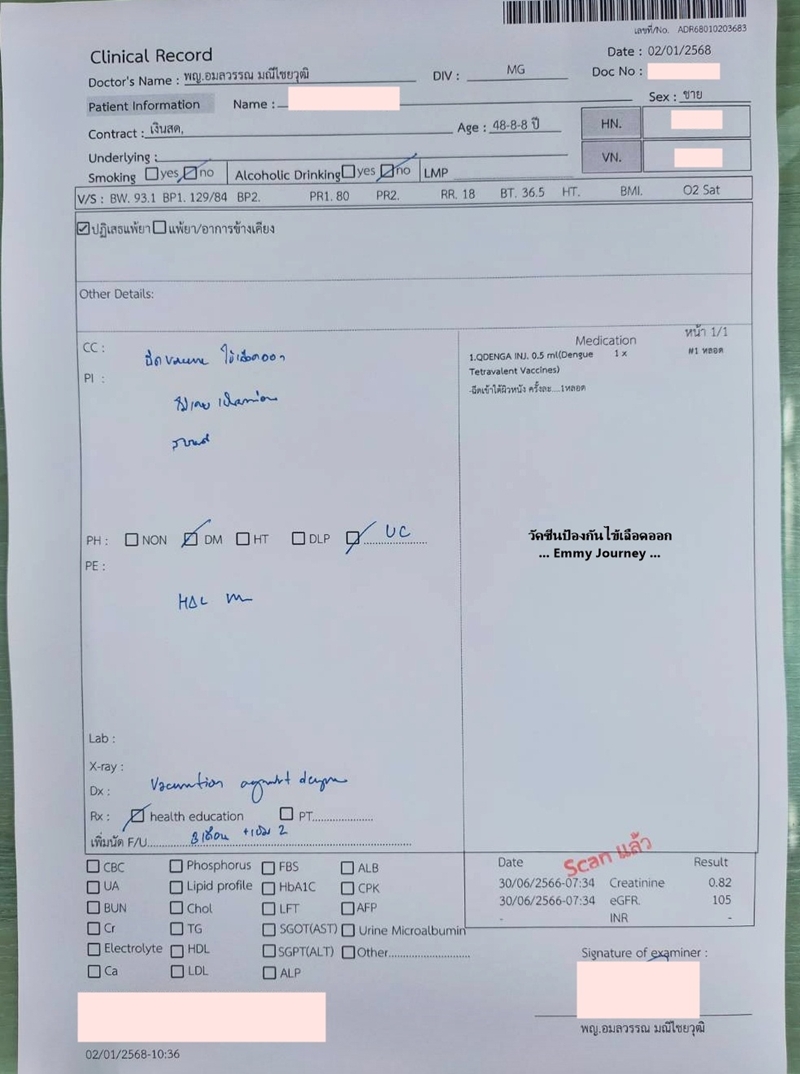 เลขที่/No. ADR68010203683
Clinical Record
Date : 02/01/2568
Doctor's Name : พญ.อมลวรรณ มณีไชยวุฒิ DIV : MG Doc No :
Patient Information Name : Sex : ชาย
Contract : เงินสด, Age : 48-8-8 ปี HN.
Underlying : VN.
Smoking yes no Alcoholic Drinking yes no LMP
V/S : BW. 93.1 BP1. 129/84 BP2. PR1. 80 PR2. RR. 18 BT. 36.5 HT. BMI. O2 Sat
ปฏิเสธแพ้ยา แพ้ยา/อาการข้างเคียง
Other Details:
CC : ฉีด vaccine ไข้เลือดออก
PI :
หน้า 1/1
Medication
1.QDENGA INJ. 0.5 ml(Dengue Tetravalent Vaccines) 1 x #1 หลอด
-ฉีดเข้าใต้ผิวหนัง ครั้งละ....1หลอด
PH : NON DM HT DLP UC
PE :
วัคซีนป้องกันไข้เลือดออก
... Emmy Journey ...
Lab :
X-ray :
Dx : Vaccination against dengue
Rx : health education PT....................
เพิ่มนัด F/U 3 เดือน +เข็ม 2
CBC Phosphorus FBS ALB
UA Lipid profile HbA1C CPK
BUN Chol LFT AFP
Cr TG SGOT(AST) Urine Microalbumin
Electrolyte HDL SGPT(ALT) Other...........................
Ca LDL ALP
Scan แล้ว
Date Result
30/06/2566-07:34 Creatinine 0.82
30/06/2566-07:34 eGFR. 105
- INR -
Signature of examiner :
พญ.อมลวรรณ มณีไชยวุฒิ
02/01/2568-10:36